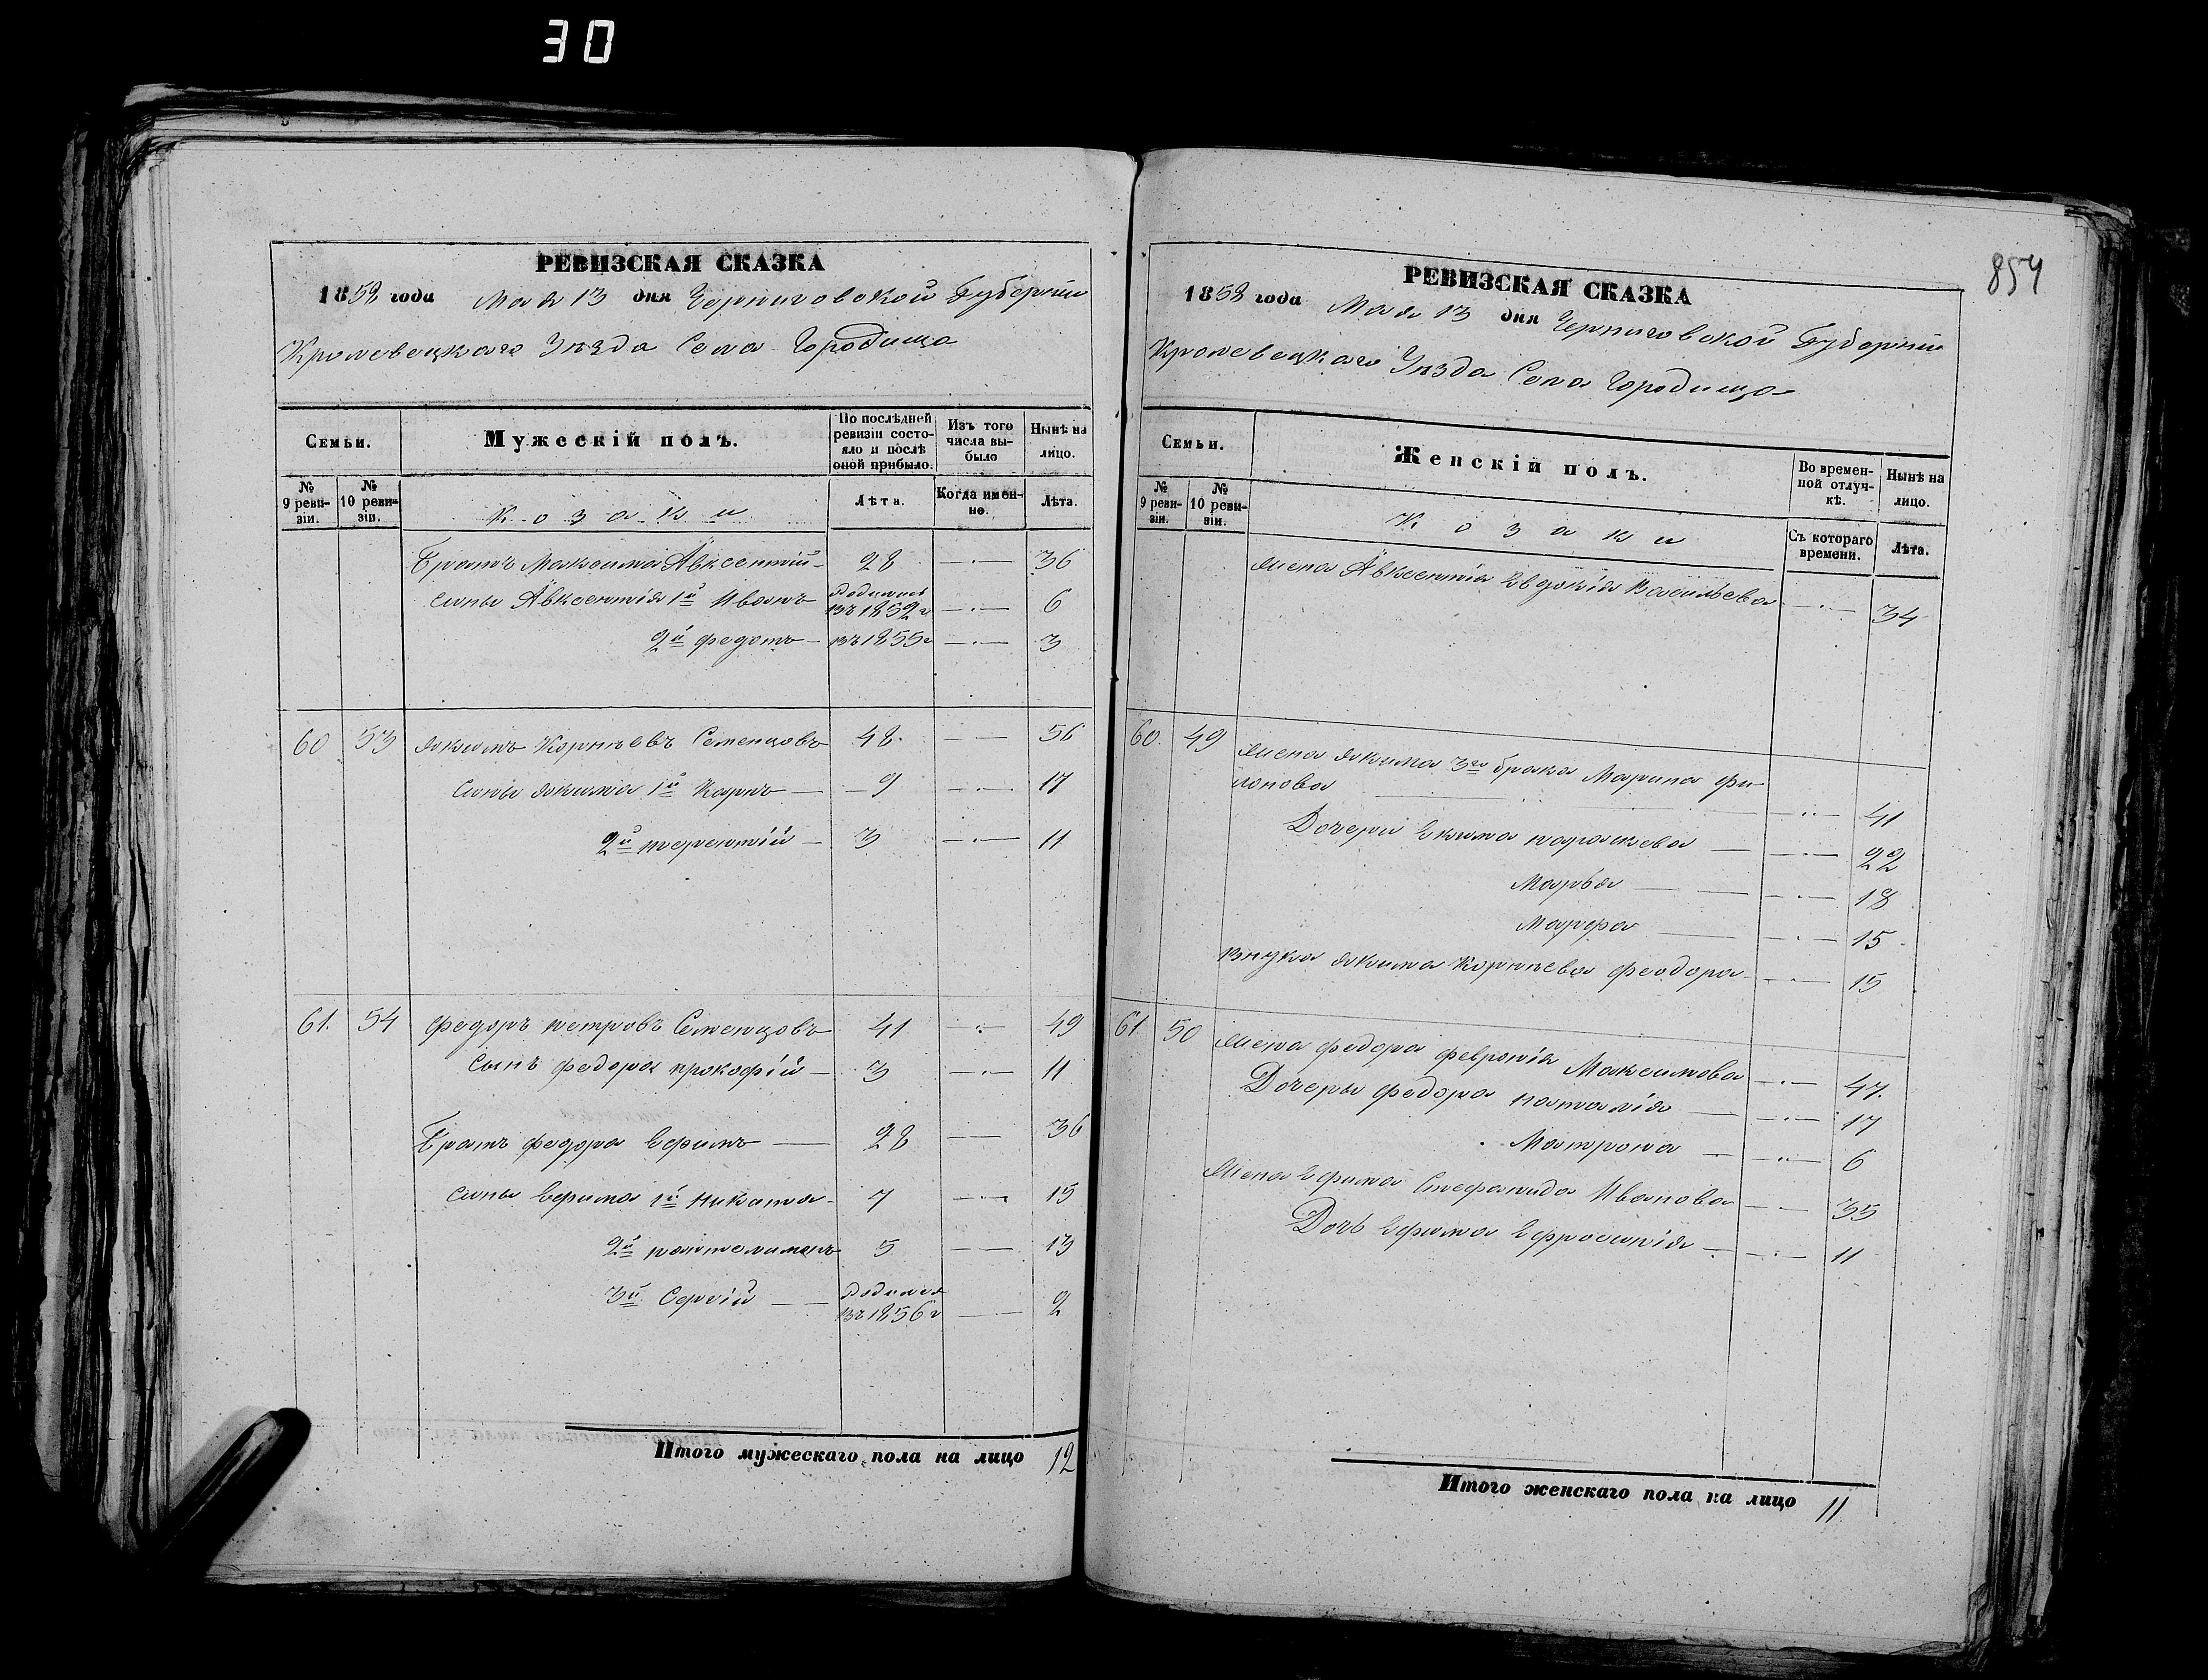 30
РЕВИЗСКАЯ СКАЗКА
1858 года Мая 13 дня Черниговской Губернии
Кролевецкаго Уѣзда Села Городища
Семьи.
Мужескій полъ.
По послѣдней ревизіи состояло и послѣ оной прибыло.
Изъ того числа выбыло
Нынѣ на лицо.
№ 9 ревизіи.
№ 10 ревизіи.
Козаки
Лѣта.
Когда именно.
Лѣта.
Братъ Максима Авксентій 28 36
Сыны Авксентія 1й Иванъ родился въ 1852 г 6
2й Федотъ въ 1855 г 3
60 53 Якимъ Корнѣевъ Семенцовъ 48 56
Сыны Якима 1й Карпъ 9 17
2й Терентій 3 11
61. 54 Федоръ Петровъ Семенцовъ 41 49
Сынъ Федора Прокофій 3 11
Братъ Федора Ефимъ 28 36
Сыны Ефима 1й Никита 7 15
2й Пантелимонъ 5 13
3й Сергій родился въ 1856 г 2
Итого мужескаго пола на лицо 12
854
РЕВИЗСКАЯ СКАЗКА
1858 года Мая 13 дня Черниговской Губернии
Кролевецкаго Уѣзда Села Городища
Семьи.
Женскій полъ.
Во временной отлучкѣ.
Нынѣ на лицо.
№ 9 ревизіи.
№ 10 ревизіи.
Козаки
Съ котораго времени.
Лѣта.
Жена Авксентія Евдокія Васильева 34
60. 49 Жена Якима 3го брака Марина Фи-
лонова 41
Дочери Екима Параскева 22
Марья 18
Марфа 15
Внука Якима Корнѣева Феодора 15
61 50 Жена Федора Февронія Максимова 47.
Дочеры Федора Наталія 17
Матрона 6
Жена Ефима Стефанида Иванова 35
Дочь Ефима Ефросинія 11
Итого женскаго пола на лицо 11